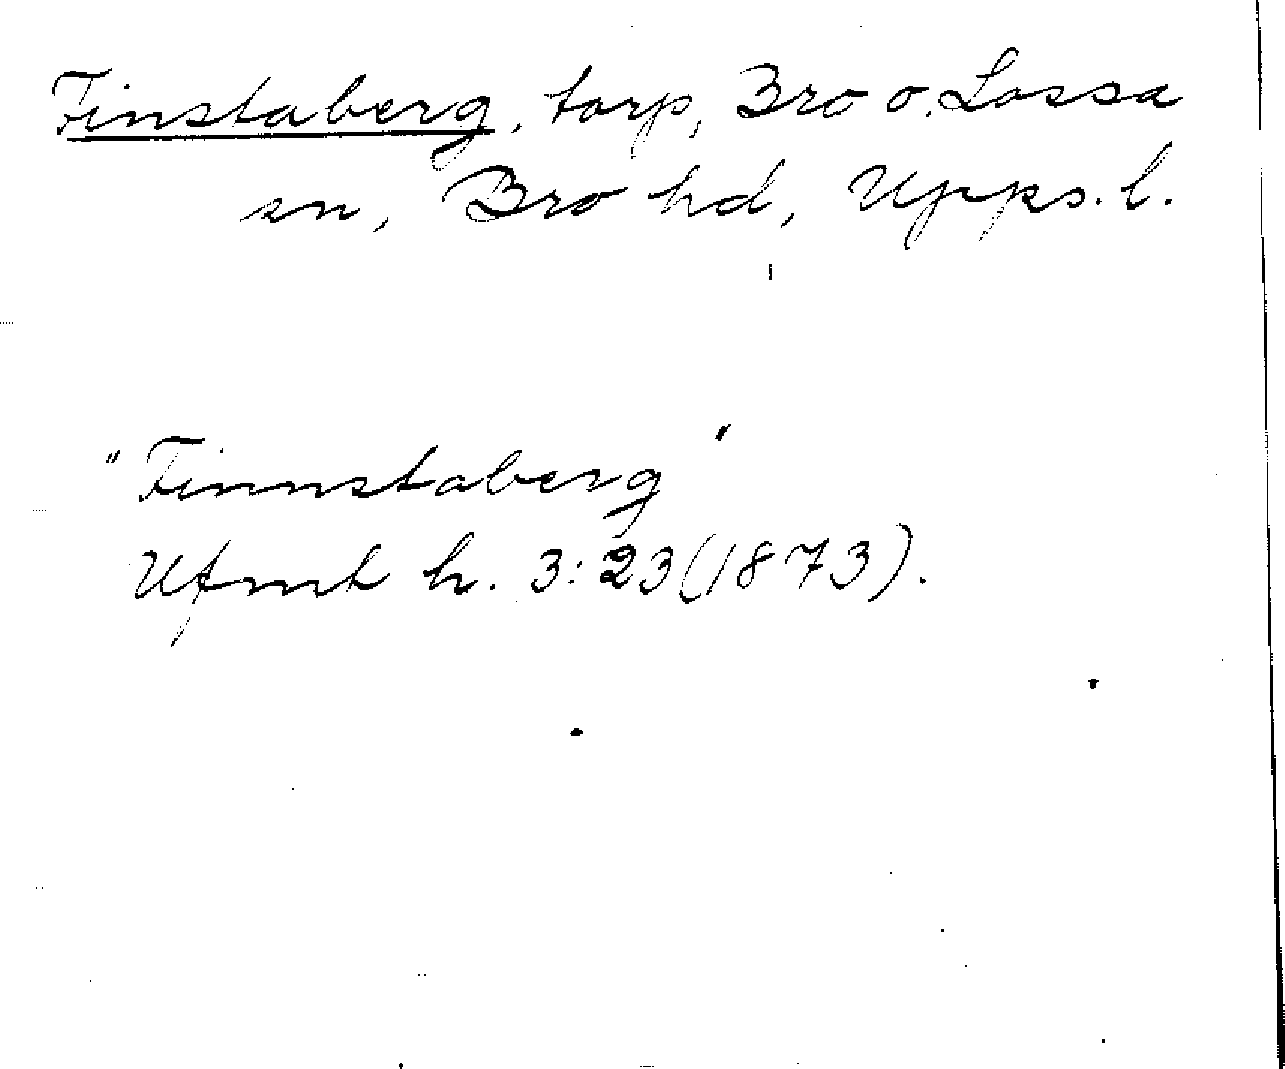 Finstaberg, torp, Bro o. Lossa
sn, Bro hd, Upps. l.
"Finnstaberg"
Ufmt h. 3:23(1873).